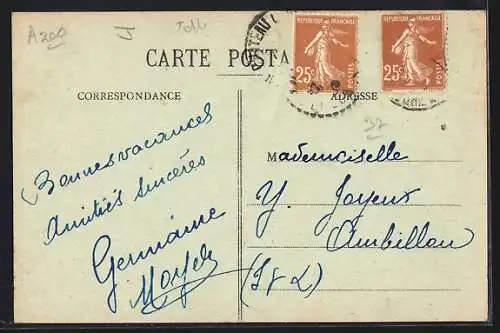 A200
CARTE POSTA
REPUBLIQUE FRANCAISE
25c POSTES
REPUBLIQUE FRANCAISE
25c POSTES
CORRESPONDANCE
ADRESSE
37
Bonnes vacances
Amitiés sincères
Germaine
Mademoiselle
Y. Joyeux
Ambillou
(I & L)